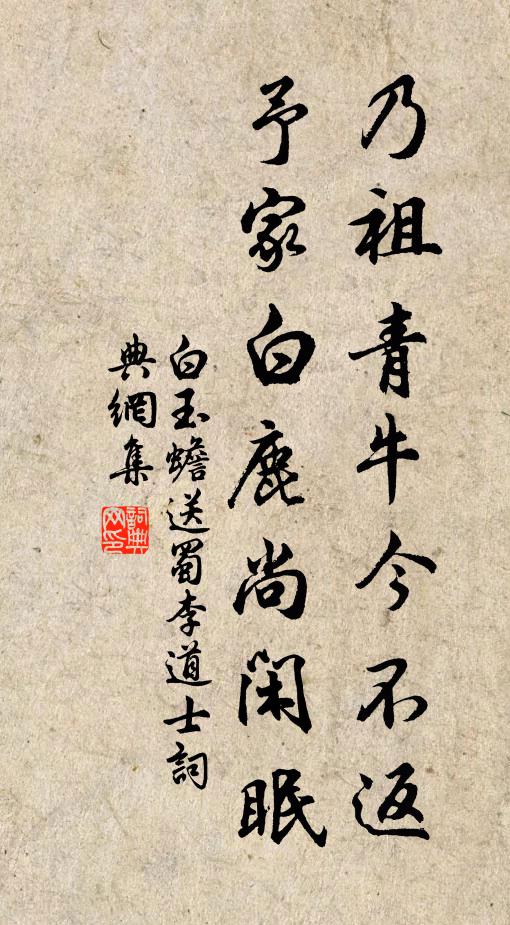 乃祖青牛今不返
予家白鹿尚閑眠
白玉蟾送蜀李道士詞
典網集
詞典网印